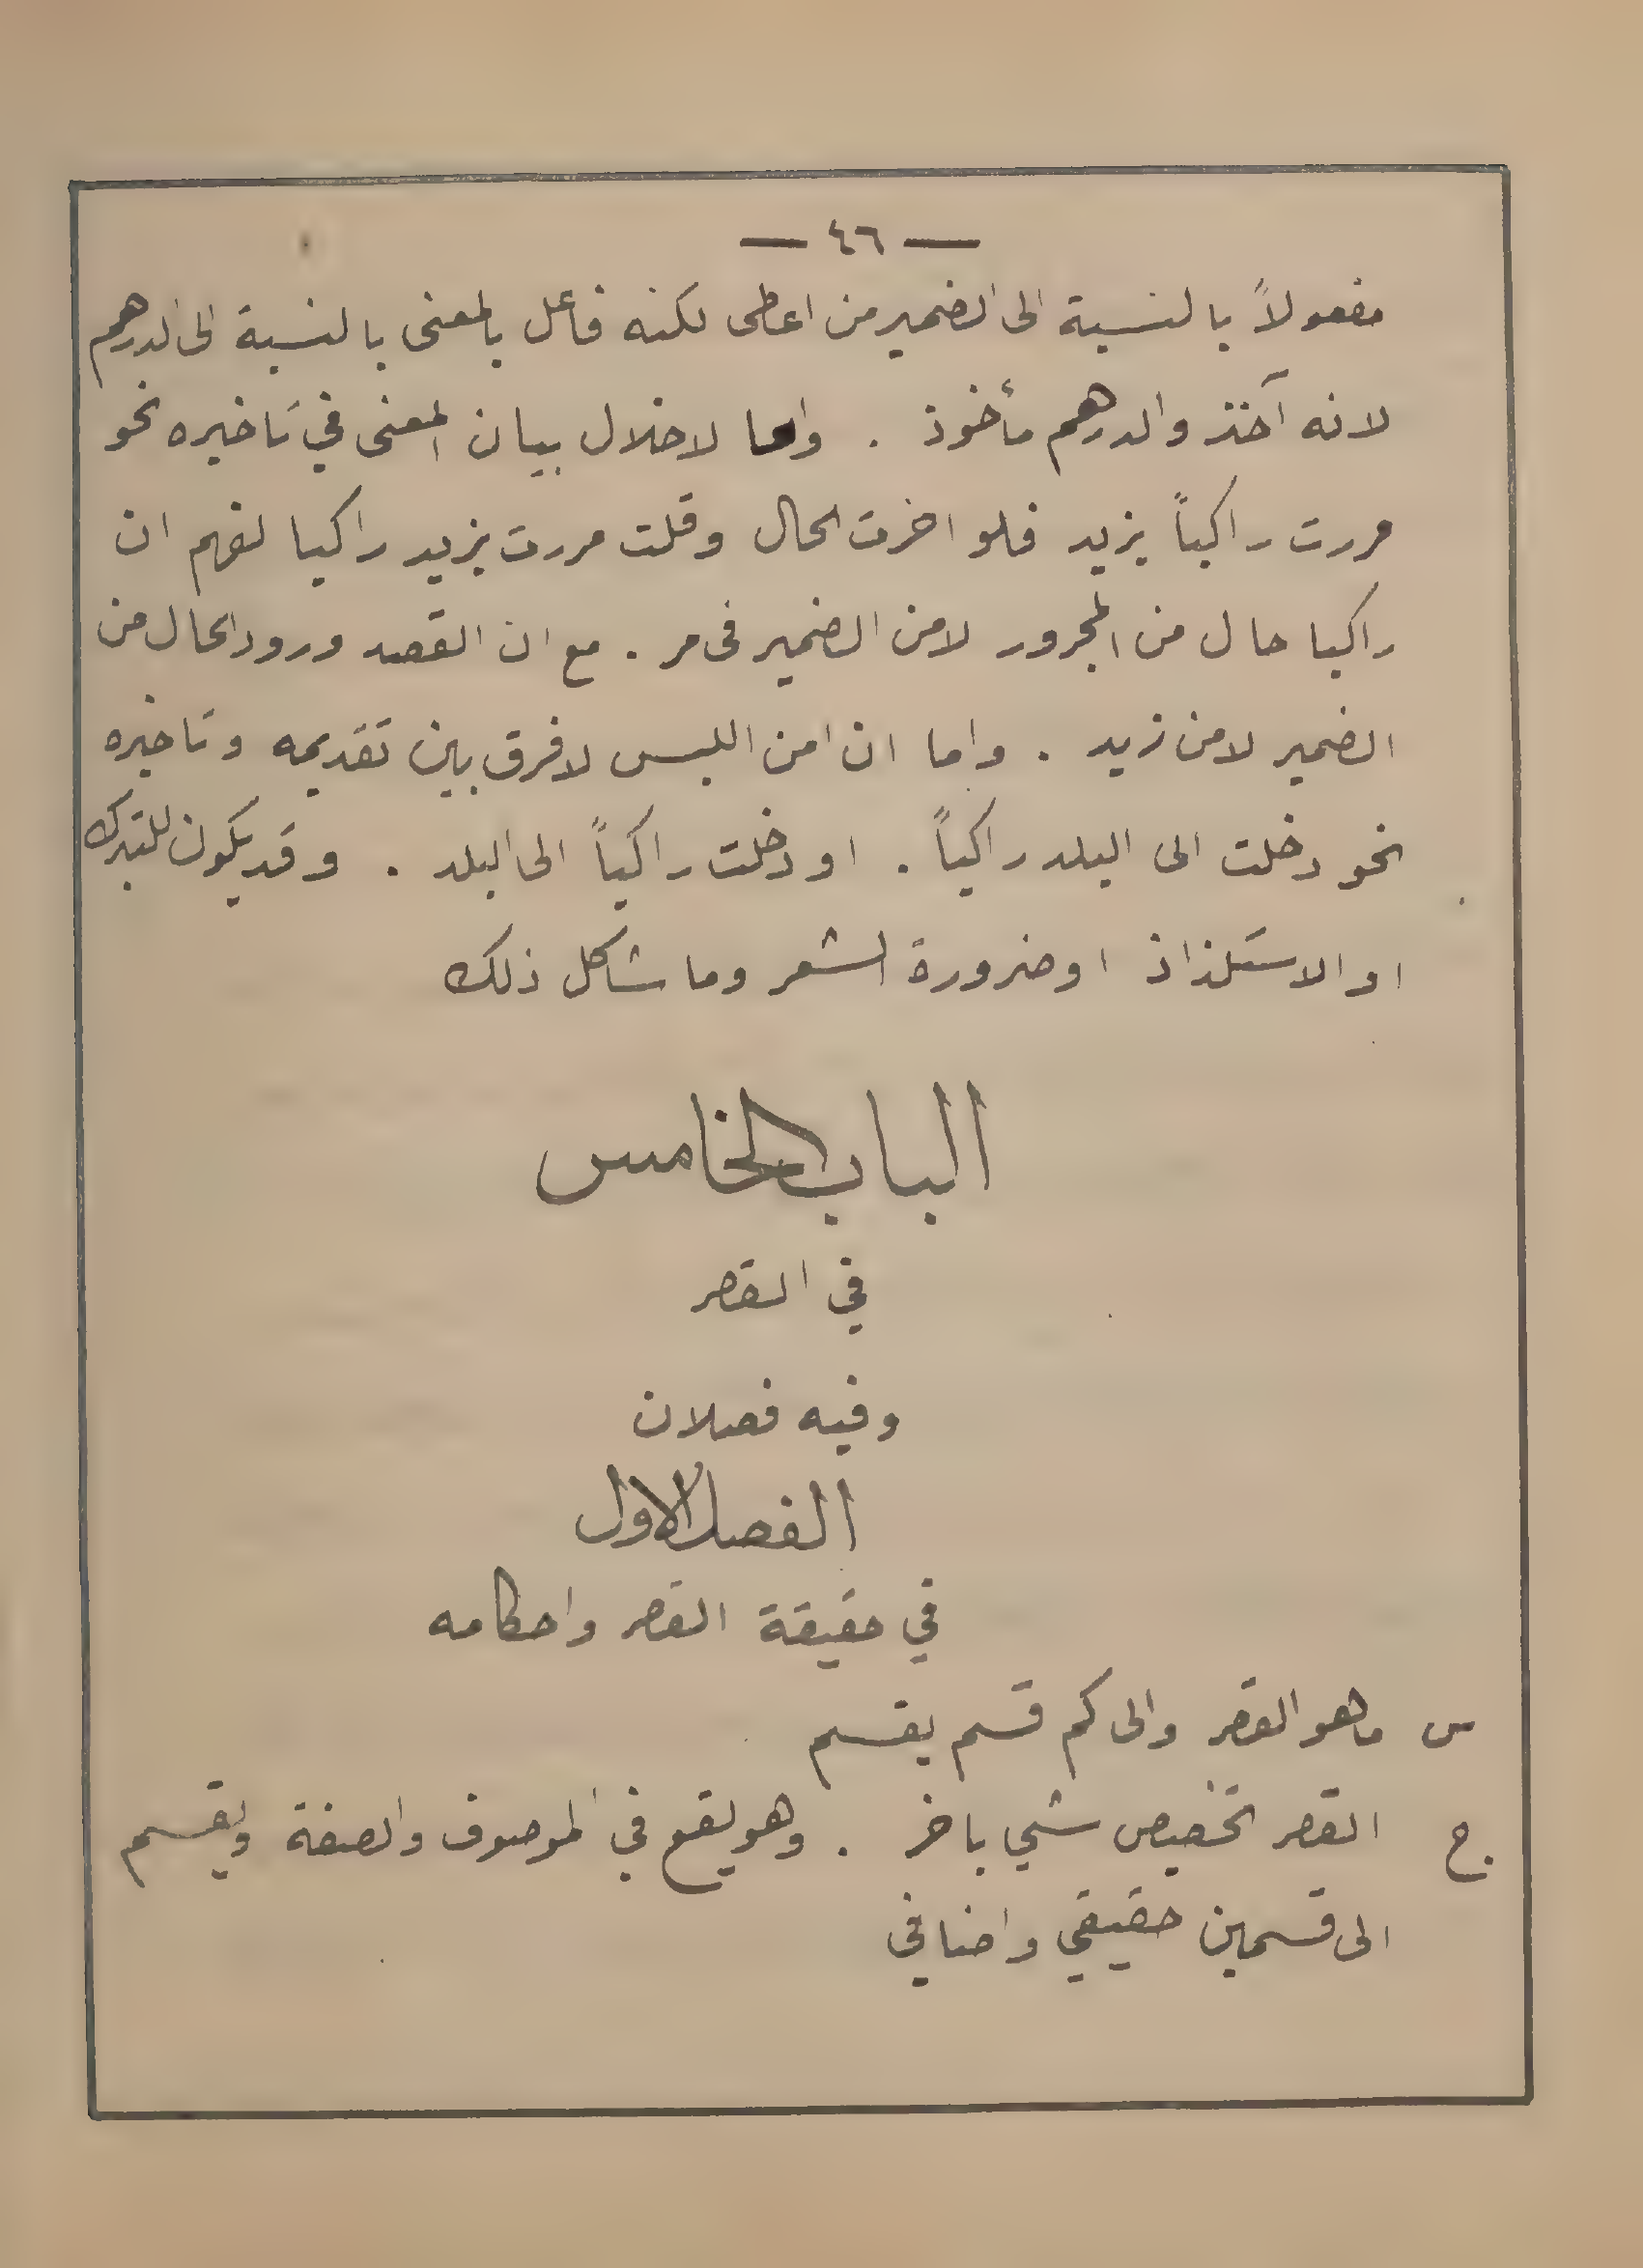 — ٤٦ —
مفعولاً بالنسبة الى الضمير من اعطى لكنه فاعل بالمعنى بالنسبة الى الدرهم
لانه آخذ والدرهم مأخوذ . واما لاخلال بيان المعنى في تاخيره نحو
مررت راكباً بزيد فلو اخرت الحال وقلت مررت بزيد راكبا لفهم ان
راكبا حال من المجرور لامن الضمير فى مر . مع ان القصد ورود الحال من
الضمير لامن زيد . واما ان امن اللبس لافرق بين تقديمه وتاخيره
نحو دخلت الى البلد راكباً . او دخلت راكباً الى البلد . وقد يكون للتبرك
او الاستلذاذ اوضرورة الشعر وما شاكل ذلك
الباب الخامس
في القصر
وفيه فصلان
الفصل الاول
في حقيقة القصر واحكامه
س ماهو القصر والى كم قسم يقسم
ج القصر تخصيص شيء باخر . وهو يقع في الموصوف والصفة ويقسم
الى قسمين حقيقي واضافي